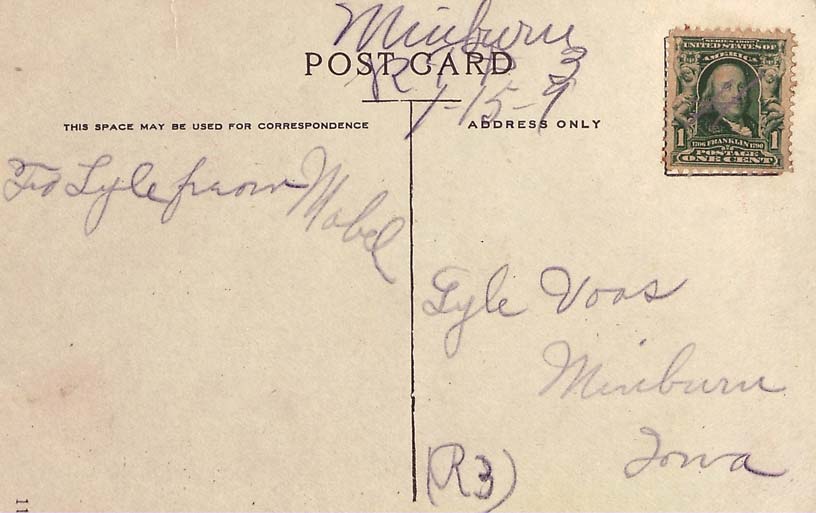 Minburn
R 3
1-15-9
POST CARD
THIS SPACE MAY BE USED FOR CORRESPONDENCE
ADDRESS ONLY
SERIES 1902
UNITED STATES OF
AMERICA
1 1706 FRANKLIN 1790 1
POSTAGE
ONE CENT
To Lyle from Mabel
Lyle Voas
Minburn
Iowa
(R3)
11